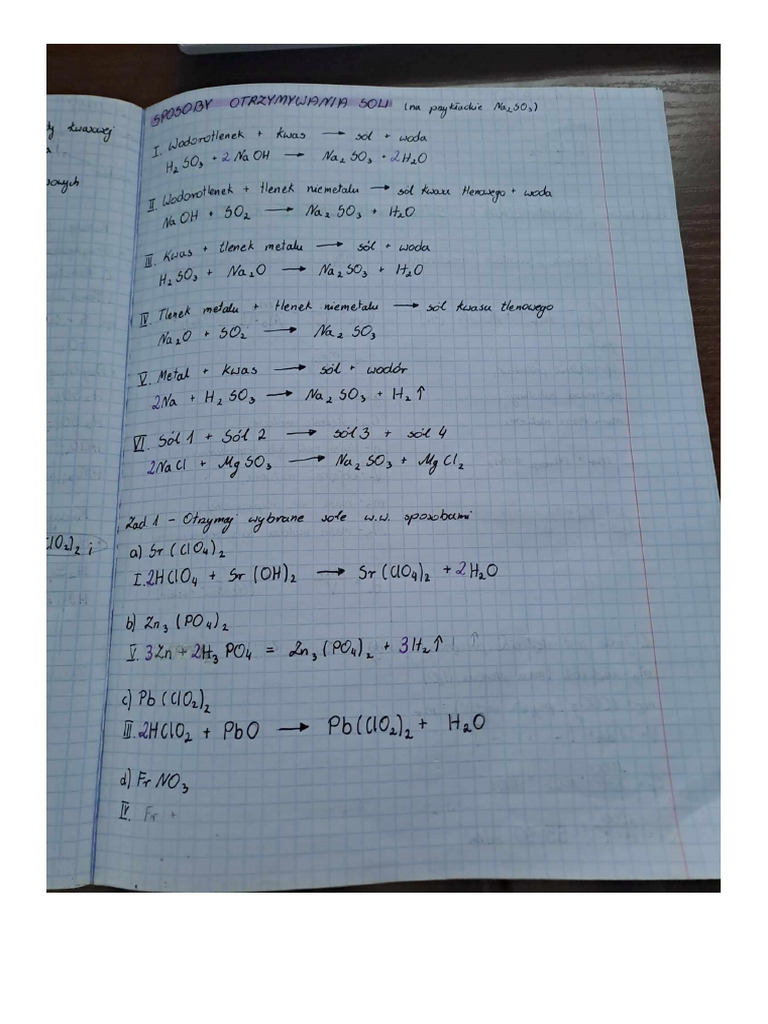 SPOSOBY OTRZYMYWANIA SOLI (na przykładzie Na₂SO₃)
I. Wodorotlenek + kwas → sól + woda
H₂SO₃ + 2NaOH → Na₂SO₃ + 2H₂O
II. Wodorotlenek + tlenek niemetalu → sól kwasu tlenowego + woda
NaOH + SO₂ → Na₂SO₃ + H₂O
III. Kwas + tlenek metalu → sól + woda
H₂SO₃ + Na₂O → Na₂SO₃ + H₂O
IV. Tlenek metalu + tlenek niemetalu → sól kwasu tlenowego
Na₂O + SO₂ → Na₂SO₃
V. Metal + kwas → sól + wodór
2Na + H₂SO₃ → Na₂SO₃ + H₂↑
VI. Sól 1 + Sól 2 → sól 3 + sól 4
2NaCl + MgSO₃ → Na₂SO₃ + MgCl₂
Zad. 1 - Otrzymaj wybrane sole w.w. sposobami
a) Sr(ClO₄)₂
I. 2HClO₄ + Sr(OH)₂ → Sr(ClO₄)₂ + 2H₂O
b) Zn₃(PO₄)₂
V. 3Zn + 2H₃PO₄ = Zn₃(PO₄)₂ + 3H₂↑
c) Pb(ClO₂)₂
III. 2HClO₂ + PbO → Pb(ClO₂)₂ + H₂O
d) FrNO₃
IV. Fr +